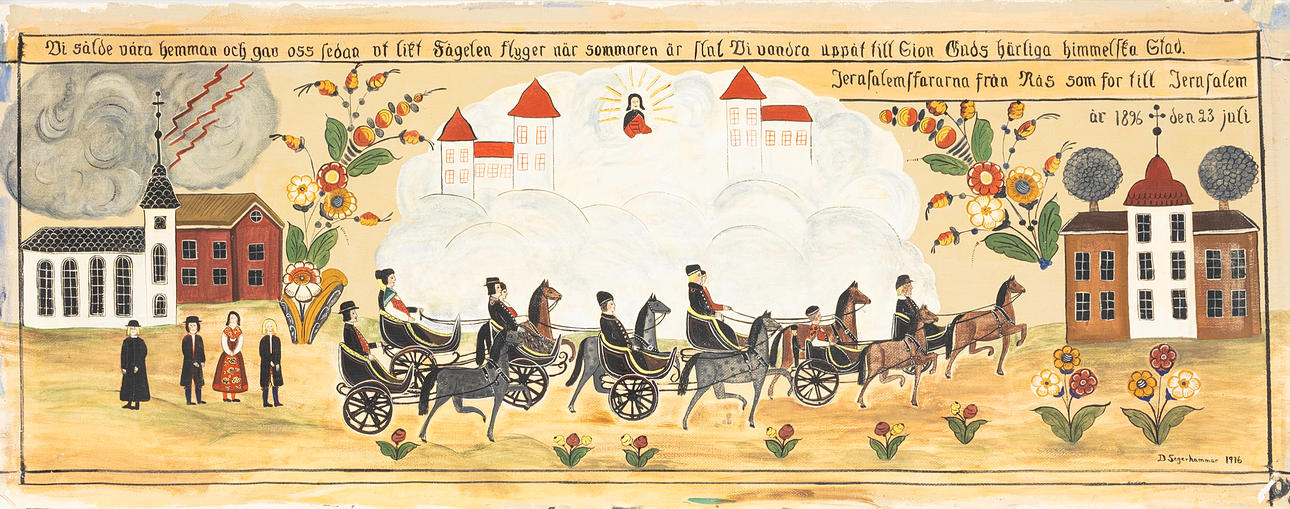 Vi sålde våra hemman och gav oss sedan ut likt Fågelen flyger när sommaren är slut Vi vandra uppåt till Sion Guds härliga himmelska Stad.
Jerusalemsfararna från Nås som for till Jerusalem
år 1896 den 23 juli
D Segerhammar 1976